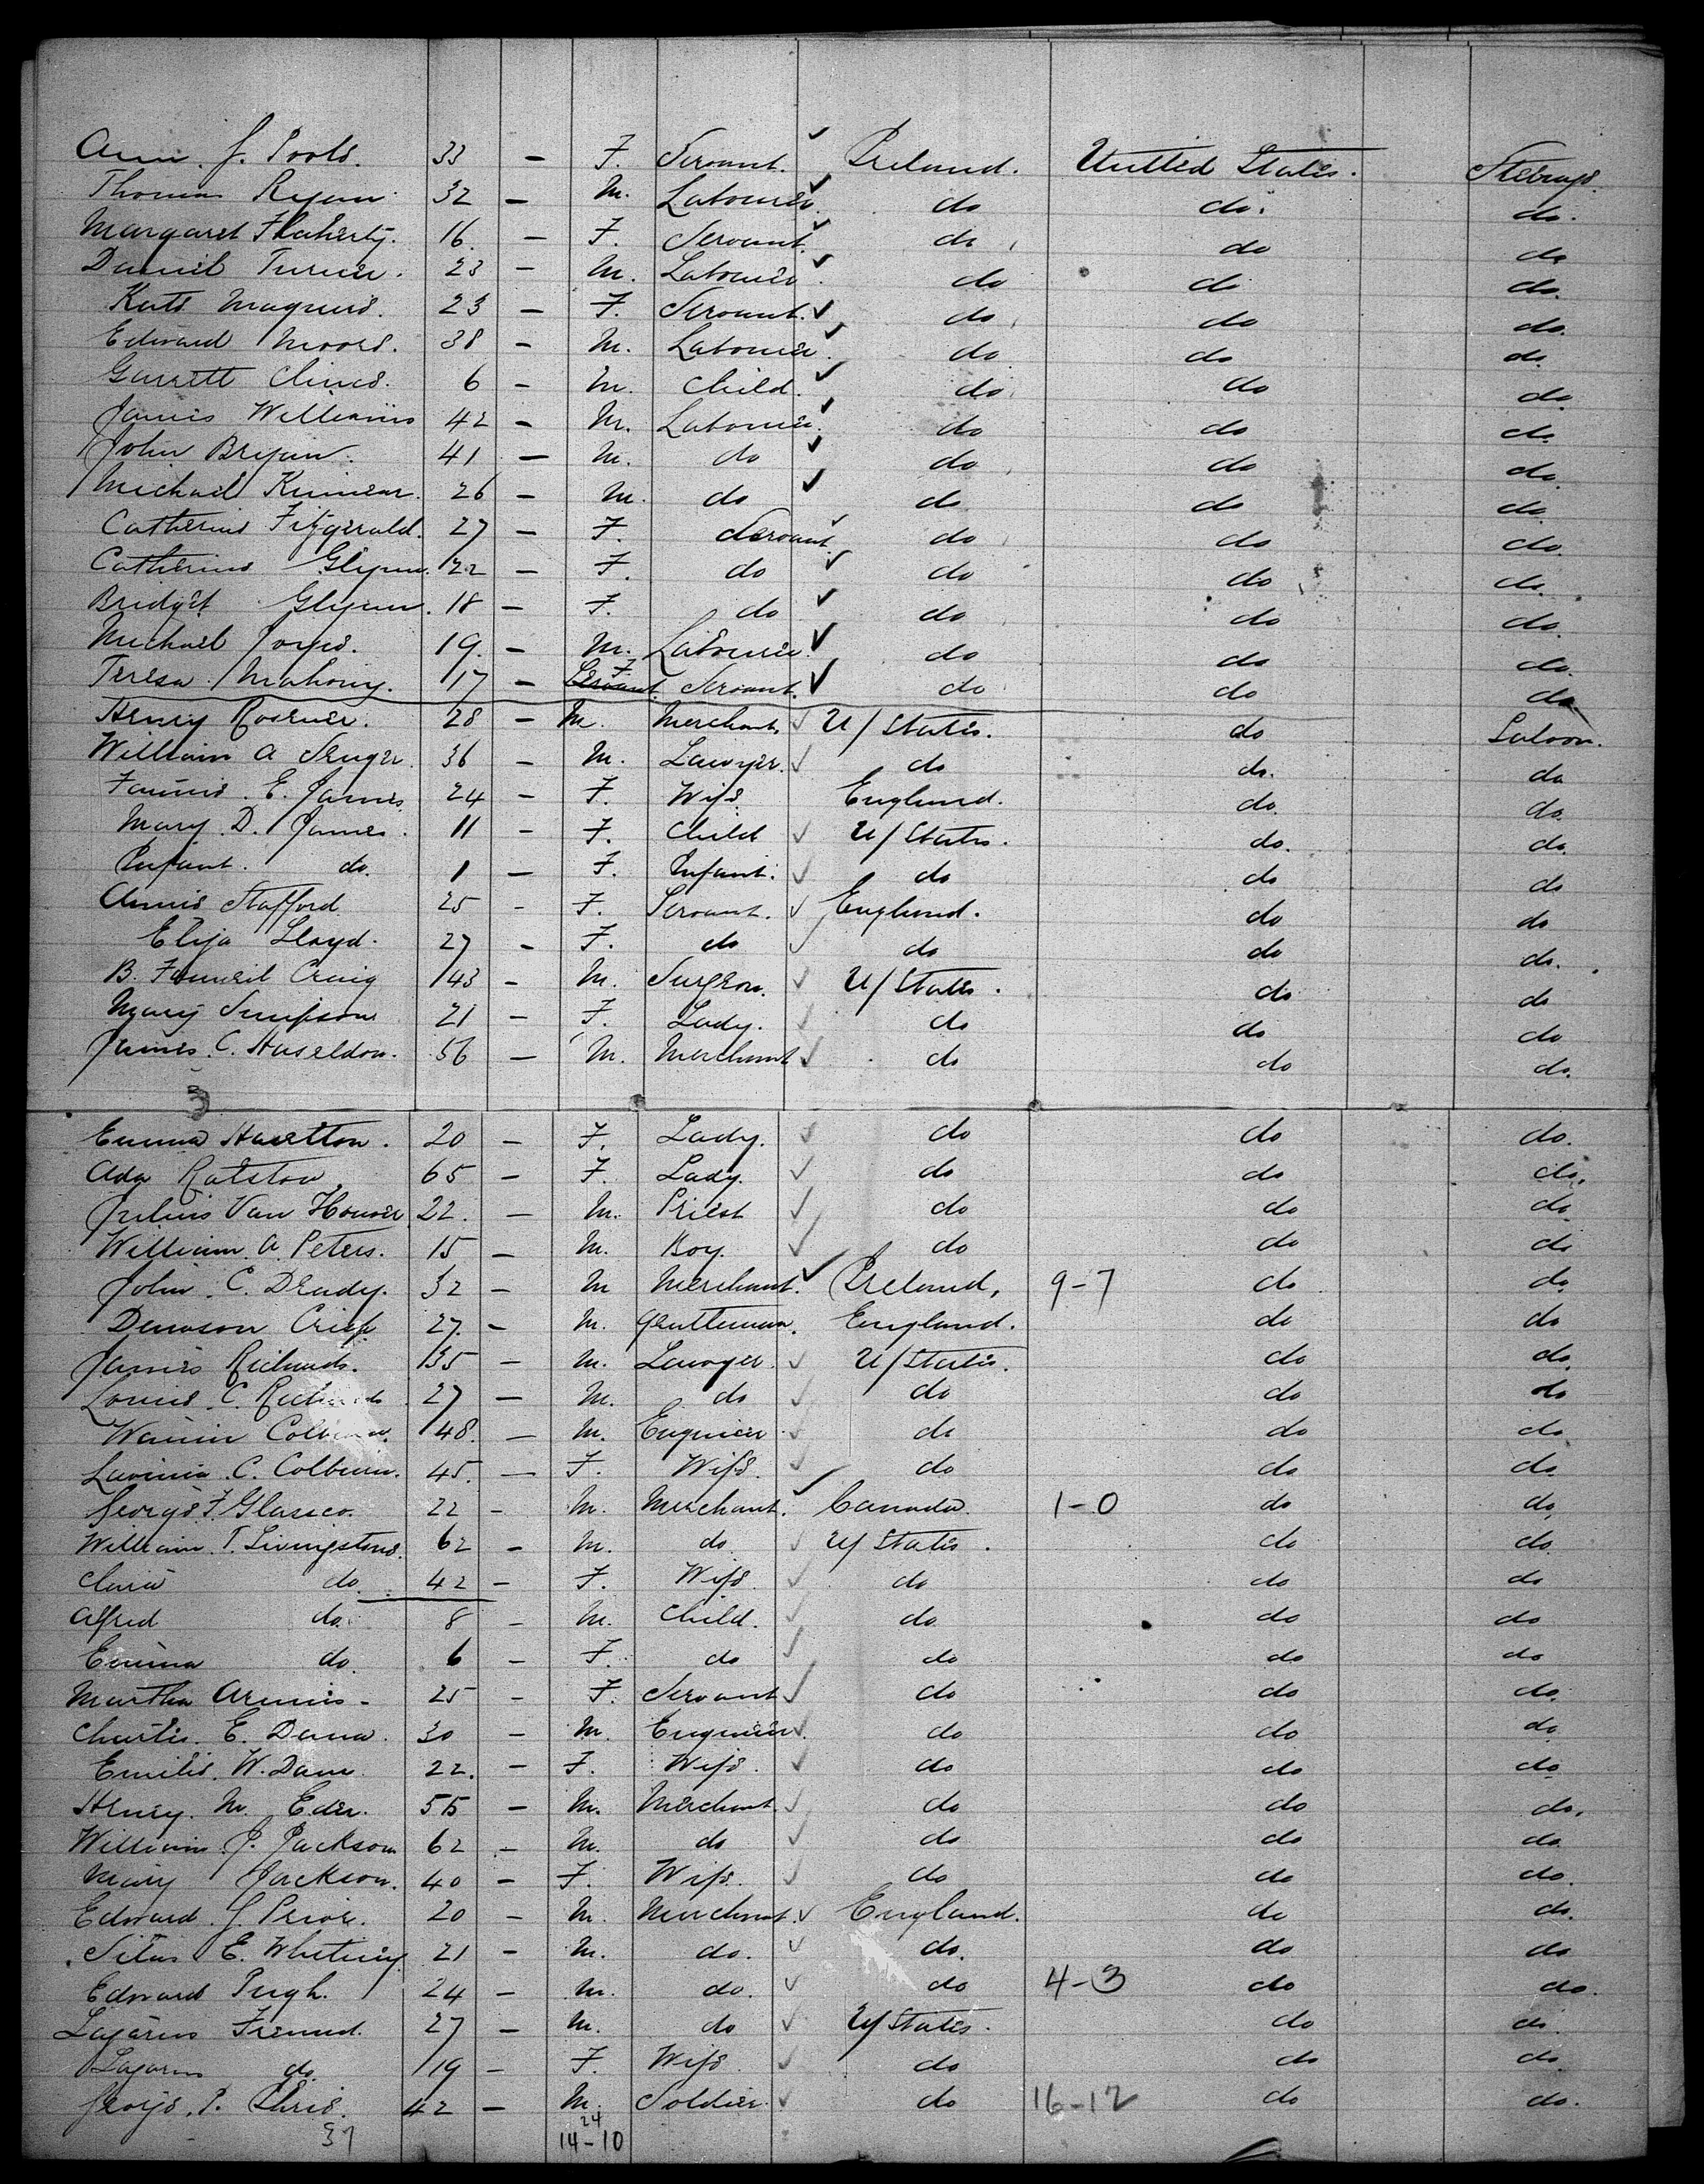 Ann. J. Poole. 33 - F. Servant. Ireland. United States. Steerage.
Thomas Ryan. 32 - M. Labourer. do do. do.
Margaret Flaherty. 16. - F. Servant. do do do
Daniel Turner. 23 - M. Labourer. do do do.
Kate Maguire. 23 - F. Servant. do do do.
Edward Moore. 38 - M. Labourer. do do do
Garrett Clines. 6 - M. Child. do do do
James Williams 42 - M. Labourer. do do do
John Bryan. 41 - M. do do do do
Michael 26 - M. do do do do
Catherine Fitzgerald. 27 - F. Servant. do do do
Catherine Glynn. 22 - F. do do do do.
Bridget Glynn. 18 - F. do do do do
Michael Joyce. 19. - M. Labourer. do do do.
Teresa Mahony. 17 - F. Servant. do do do
Henry Rosener. 28 - M. Merchant. U/States. do Saloon.
William A 36 - M. Lawyer. do do. do
Fannie. E. James. 24 - F. Wife. England. do. do.
Mary. D. James. 11 - F. Child U/States. do. do.
Infant. do. 1 - F. Infant. do do do
Annie Stafford 25 - F. Servant. England. do do
Eliza Lloyd. 27 - F. do do do do.
B. Craig 43 - M. Surgeon. U/States. do do
Mary Simpson 21 - F. Lady. do do do
James. C. Haseldon. 56 - M. Merchant do do do.
3
Emma 20 - F. Lady. do do do.
Ada Ralston 65 - F. Lady. do do do.
Julius Van 22. - M. Priest do do do
William. A. Peters. 15 - M. Boy. do do do
John. C. Deady. 32 - M Merchant. Ireland, 9-7 do do
Crisp 27. - M. Gentleman. England. do do
James Richards. 35 - M. Lawyer. U/States. do do.
Louis. C. 27 - M. do do do do
48. - M. Engineer do do do
Lavinia. C. Colburn. 45. - F. Wife. do do do
George. F. Glassco. 22 - M. Merchant. Canada. 1-0 do do,
William. T. Livingstone. 62 - M. do U/States. do do
do. 42 - F. Wife do do do
Alfred do. 8 - M. Child. do do do
Emma do. 6 - F. do do do do
Martha 25 - F. Servant do do do.
Charles. E. Dana. 30 - M. Engineer. do do do
Emilie. W. Dana. 22. - F. Wife. do do do
Henry. M. Eder. 55 - M. Merchant. do do do.
William. P. Jackson 62 - M. do do do do.
Mary Jackson. 40 - F. Wife. do do do.
Edward. J. Prior. 20 - M. Merchant. England. do do.
Silas E. Whitney 21 - M. do. do. do do
Edward Pugh. 24 - M. do. do 4-3 do do.
Lazarus Freund. 27 - M. do U/States. do do.
Lazarus do. 19 - F. Wife do do do.
George. P. 42 - M. Soldier. do 16-12 do do.
37 24
14-10